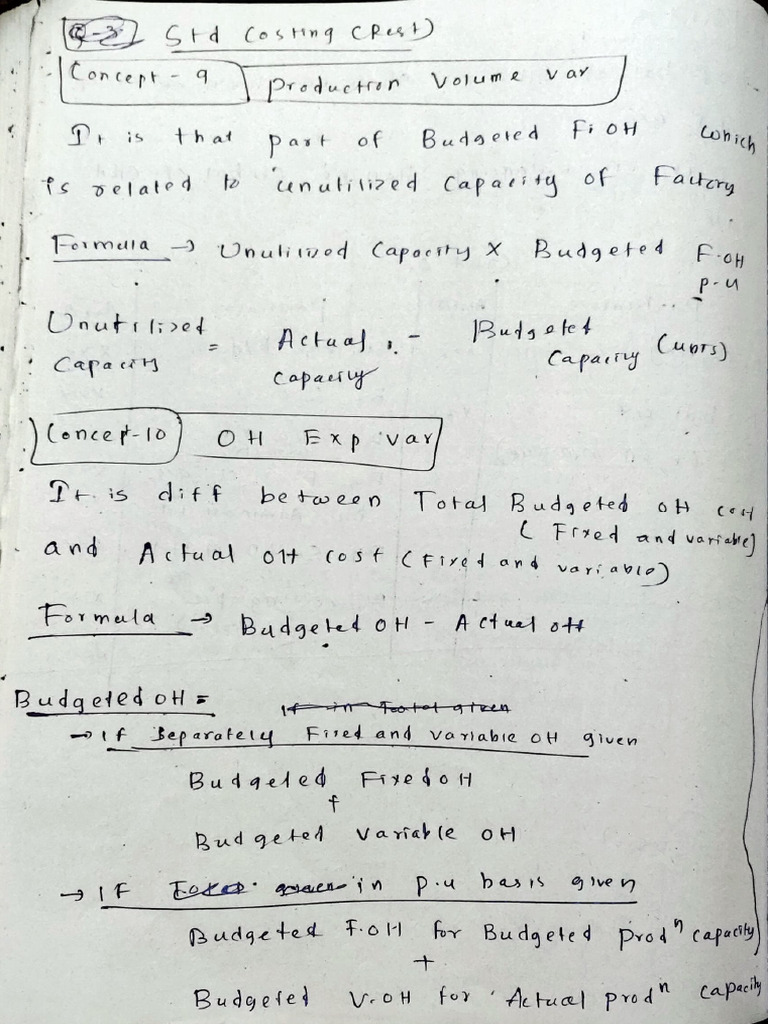 Q-3 Std Costing (Rest)
Concept - 9 Production Volume Var
It is that part of Budgeted FiOH which
is related to unutilized Capacity of Factory
Formula → Unutilized Capacity × Budgeted F.OH
p.u
Unutilized Capacity = Actual Capacity - Budgeted Capacity (units)
Concept-10 OH Exp var
It is diff between Total Budgeted OH cost
(Fixed and variable)
and Actual OH cost (Fixed and variable)
Formula → Budgeted OH - Actual OH
Budgeted OH = If in Total given
→ If Seperately Fixed and variable OH given
Budgeted Fixed OH
+
Budgeted Variable OH
→ IF in p.u basis given
Budgeted F.OH for Budgeted Prodⁿ capacity
+
Budgeted V.OH for Actual prodⁿ capacity